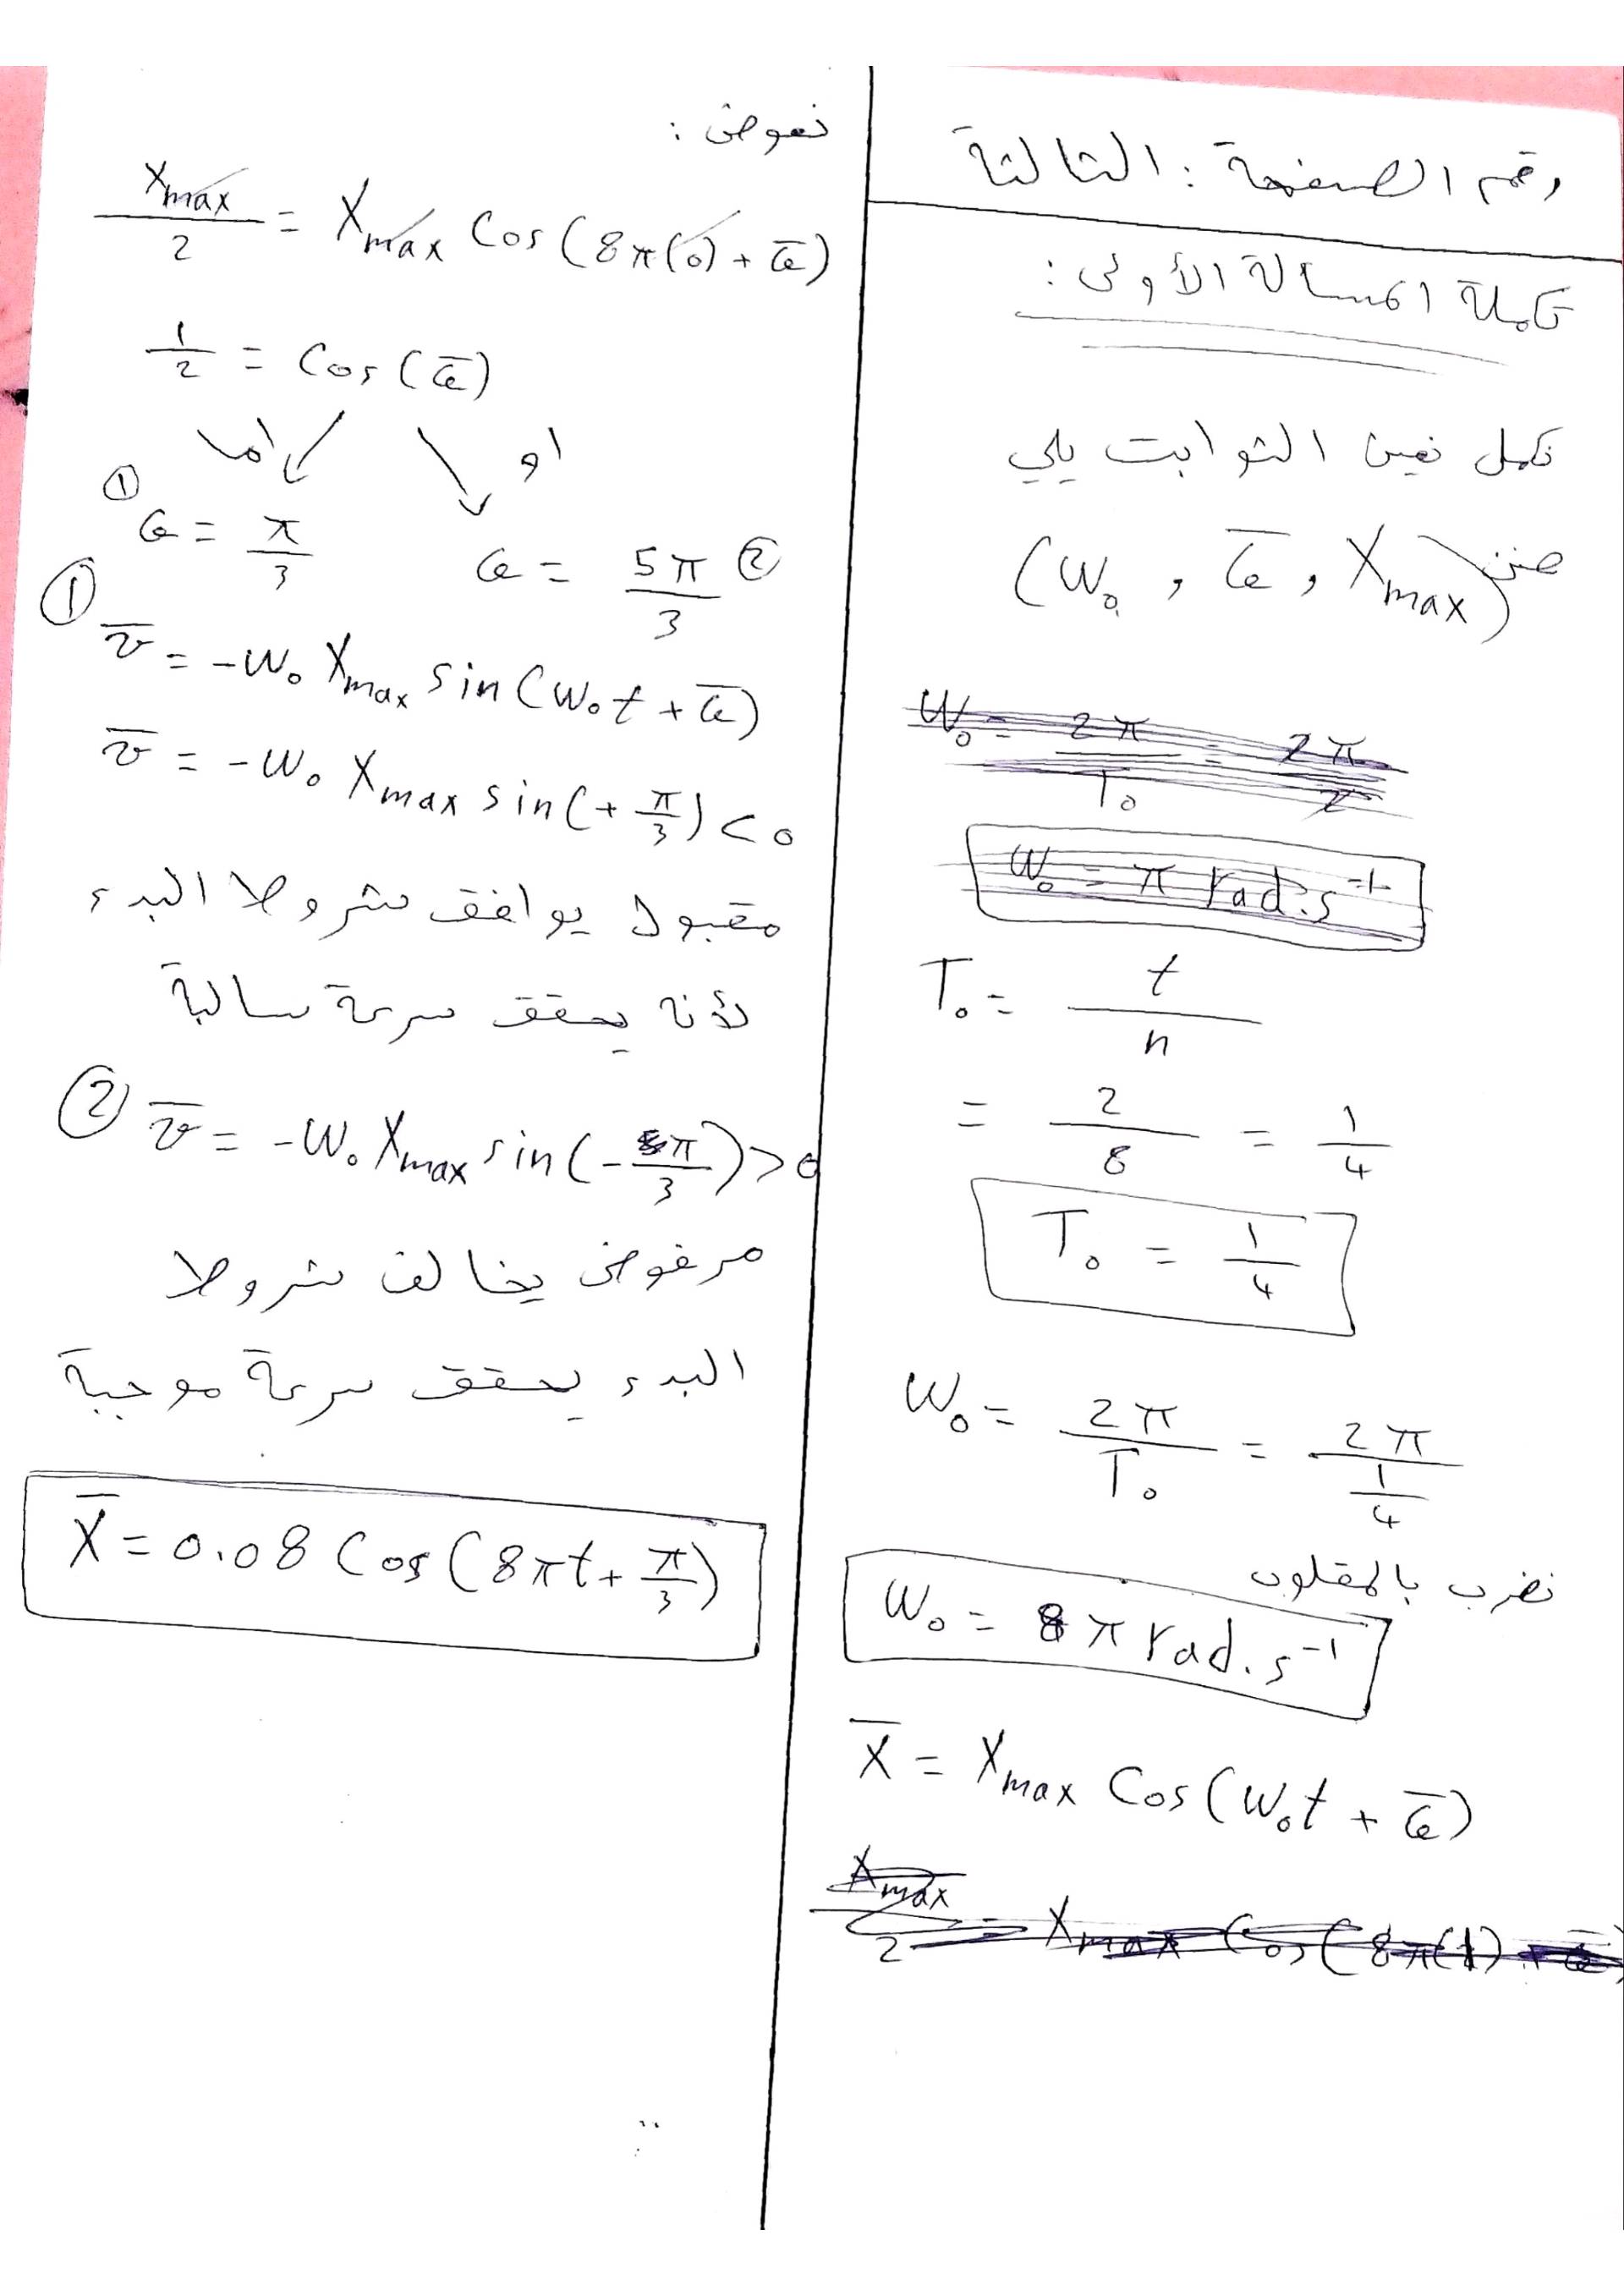 رقم الصفحة : الثالثة
تكملة المسالة الأولى :
نكمل نعين الثوابت يلي
ضمن (W₀ , φ̅ , Xmax)
W₀ = 2π / T₀ = 2π / 2
W₀ = π rad.s⁻¹
T₀ = t / n
= 2 / 8 = 1 / 4
T₀ = 1 / 4
W₀ = 2π / T₀ = 2π / (1/4)
نضرب بالمقلوب
W₀ = 8π rad.s⁻¹
X̅ = Xmax Cos(W₀t + φ̅)
Xmax / 2 = Xmax Cos(8π(1) + φ̅)
نعوض :
Xmax / 2 = Xmax Cos(8π(0) + φ̅)
1/2 = Cos(φ̅)
اما او
① φ = π/3 φ = 5π/3 ②
① v̅ = -W₀ Xmax sin(W₀t + φ̅)
v̅ = -W₀ Xmax sin(+ π/3) < 0
مقبول يوافق شروط البدء
لأنه يحقق سرعة سالبة
② v̅ = -W₀ Xmax sin(- 5π/3) > 0
مرفوض يخالف شروط
البدء يحقق سرعة موجبة
X̅ = 0.08 Cos(8πt + π/3)